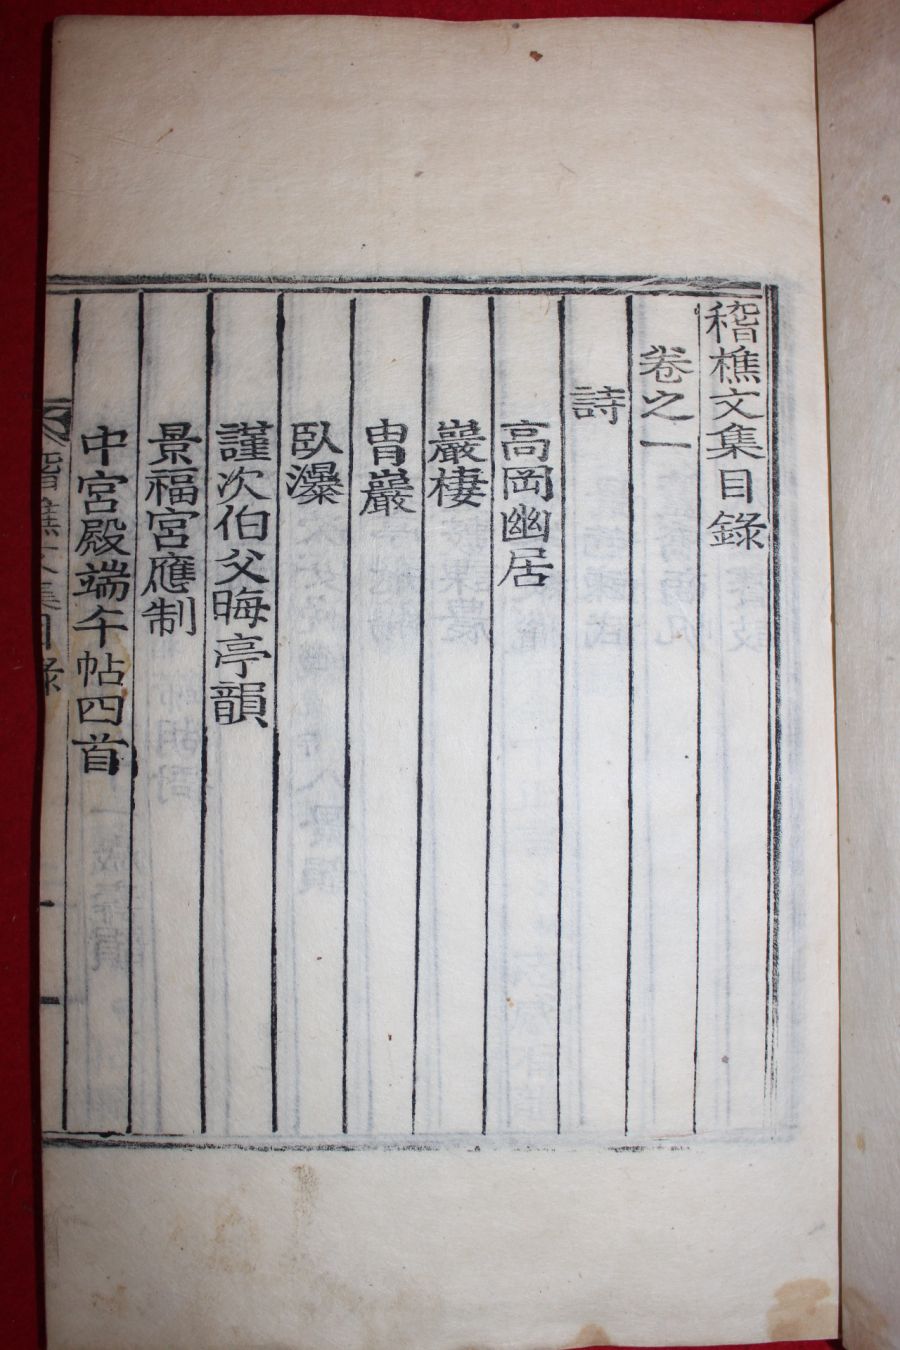 稽樵文集目錄
卷之一
詩
高岡幽居
巖棲
冑巖
臥瀑
謹次伯父晦亭韻
景福宮應制
中宮殿端午帖四首
稽樵文集目錄 一